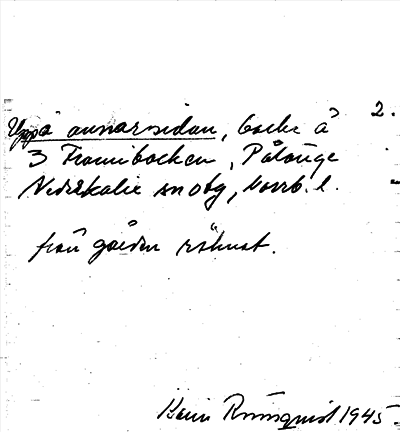 2.
Uppå annarsidan, backe å
3 Framibacken, Pålänge
Nederkalix snobg, Norrb. l.
från gården räknat.
1945